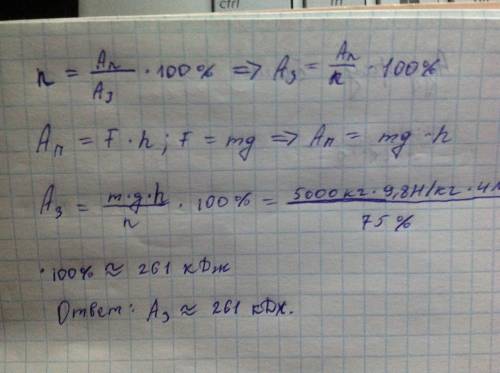 ctrl
n = Aп/Aз · 100% => Aз = Aп/n · 100%
Aп = F · h ; F = mg => Aп = mg · h
Aз = m·g·h/n · 100% = 5000кг · 9,8Н/кг · 4м/75%
· 100% ≈ 261 кДж
Ответ: Aз ≈ 261 кДж.